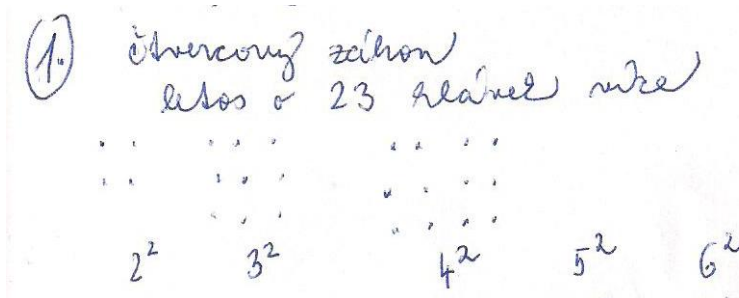 1. čtvercový záhon
letos o 23 hlávek více
2² 3² 4² 5² 6²